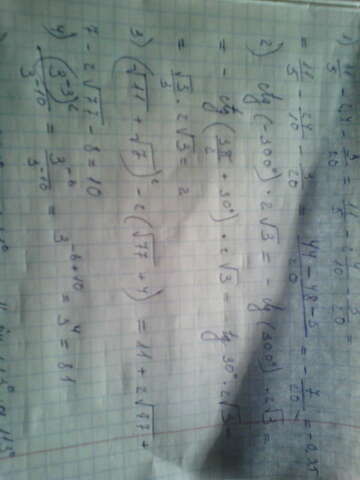 = 11/5 - 24/10 - 3/20 = (44 - 48 - 3)/20 = - 7/20 = - 0,35
2) ctg (-300°) · 2√3 = - ctg (300°) · 2√3 =
= - ctg (3π/2 + 30°) · 2√3 = tg 30° · 2√3 =
= √3/3 · 2√3 = 2
3) (√11 + √7)² - 2(√77 + 4) = 11 + 2√77 +
7 - 2√77 - 8 = 10
4) (3⁻³)²/3⁻¹⁰ = 3⁻⁶/3⁻¹⁰ = 3⁻⁶⁺¹⁰ = 3⁴ = 81